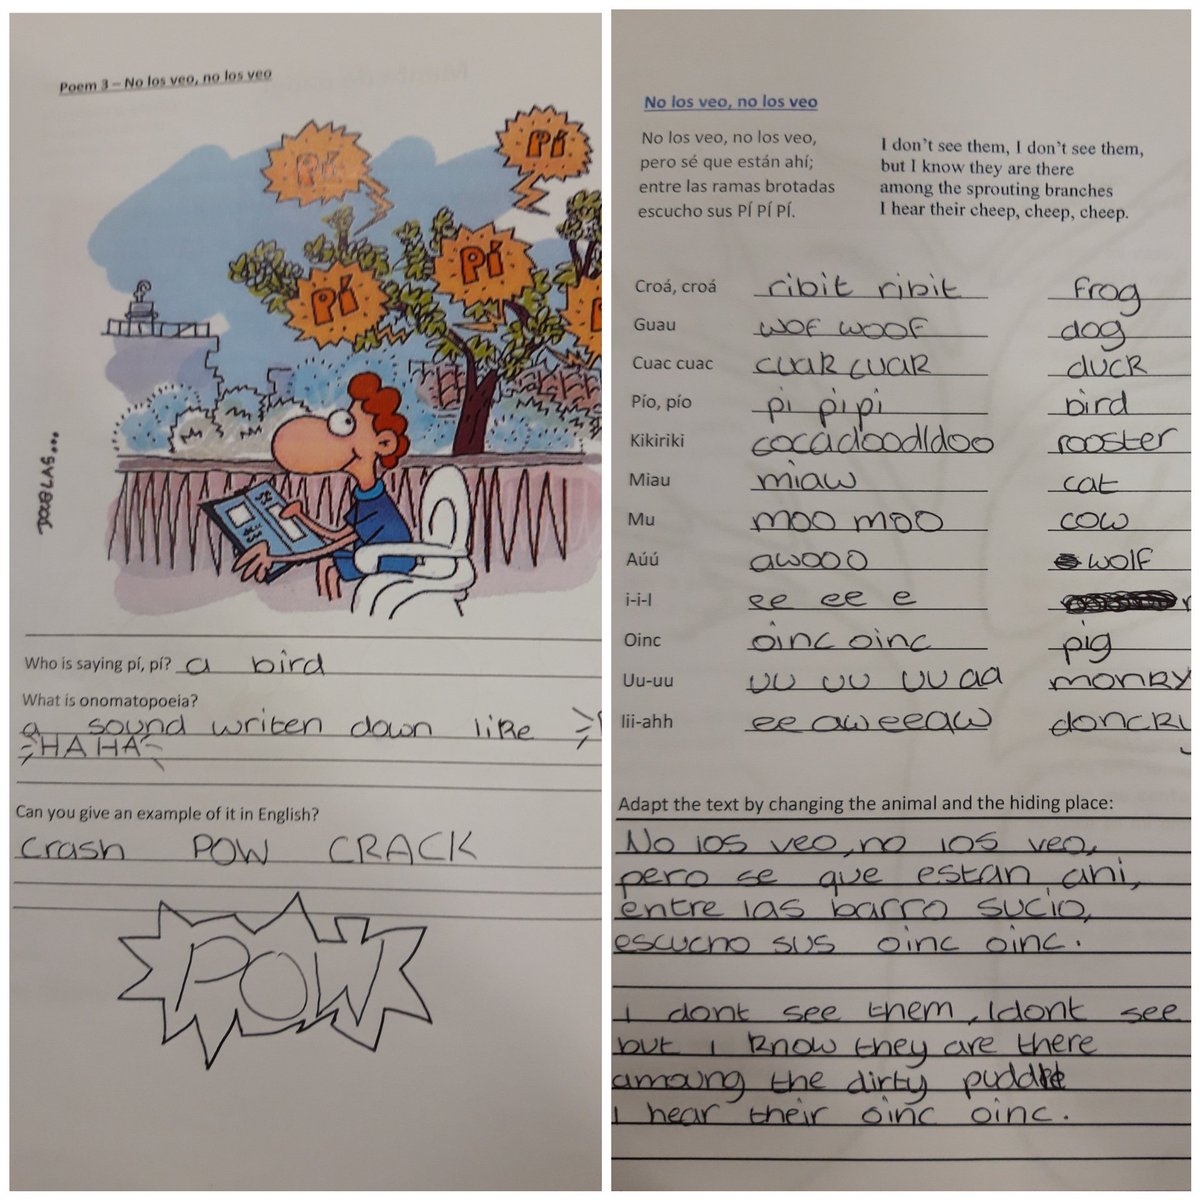 Poem 3 – No los veo, no los veo
Pí
Pí
Pí
Pí
DOUGLAS...
Who is saying pí, pí? a bird
What is onomatopoeia?
a sound writen down like
HA HA
Can you give an example of it in English?
crash POW CRACK
POW
No los veo, no los veo
No los veo, no los veo,
pero sé que están ahí;
entre las ramas brotadas
escucho sus PÍ PÍ PÍ.
I don't see them, I don't see them,
but I know they are there
among the sprouting branches
I hear their cheep, cheep, cheep.
Croá, croá ribit ribit frog
Guau wof woof dog
Cuac cuac cuak cuak duck
Pío, pío pi pi pi bird
Kikiriki cocadoodldoo rooster
Miau miaw cat
Mu moo moo cow
Aúú awooo wolf
i-i-I ee ee e
Oinc oinc oinc pig
Uu-uu uu uu uu aa monky
Iii-ahh ee aw eeaw doncky
Adapt the text by changing the animal and the hiding place:
No los veo, no los veo,
pero se que estan ahi,
entre las barro sucio,
escucho sus oinc oinc.
I dont see them, I dont see
but i know they are there
amoung the dirty puddle
i hear their oinc oinc.